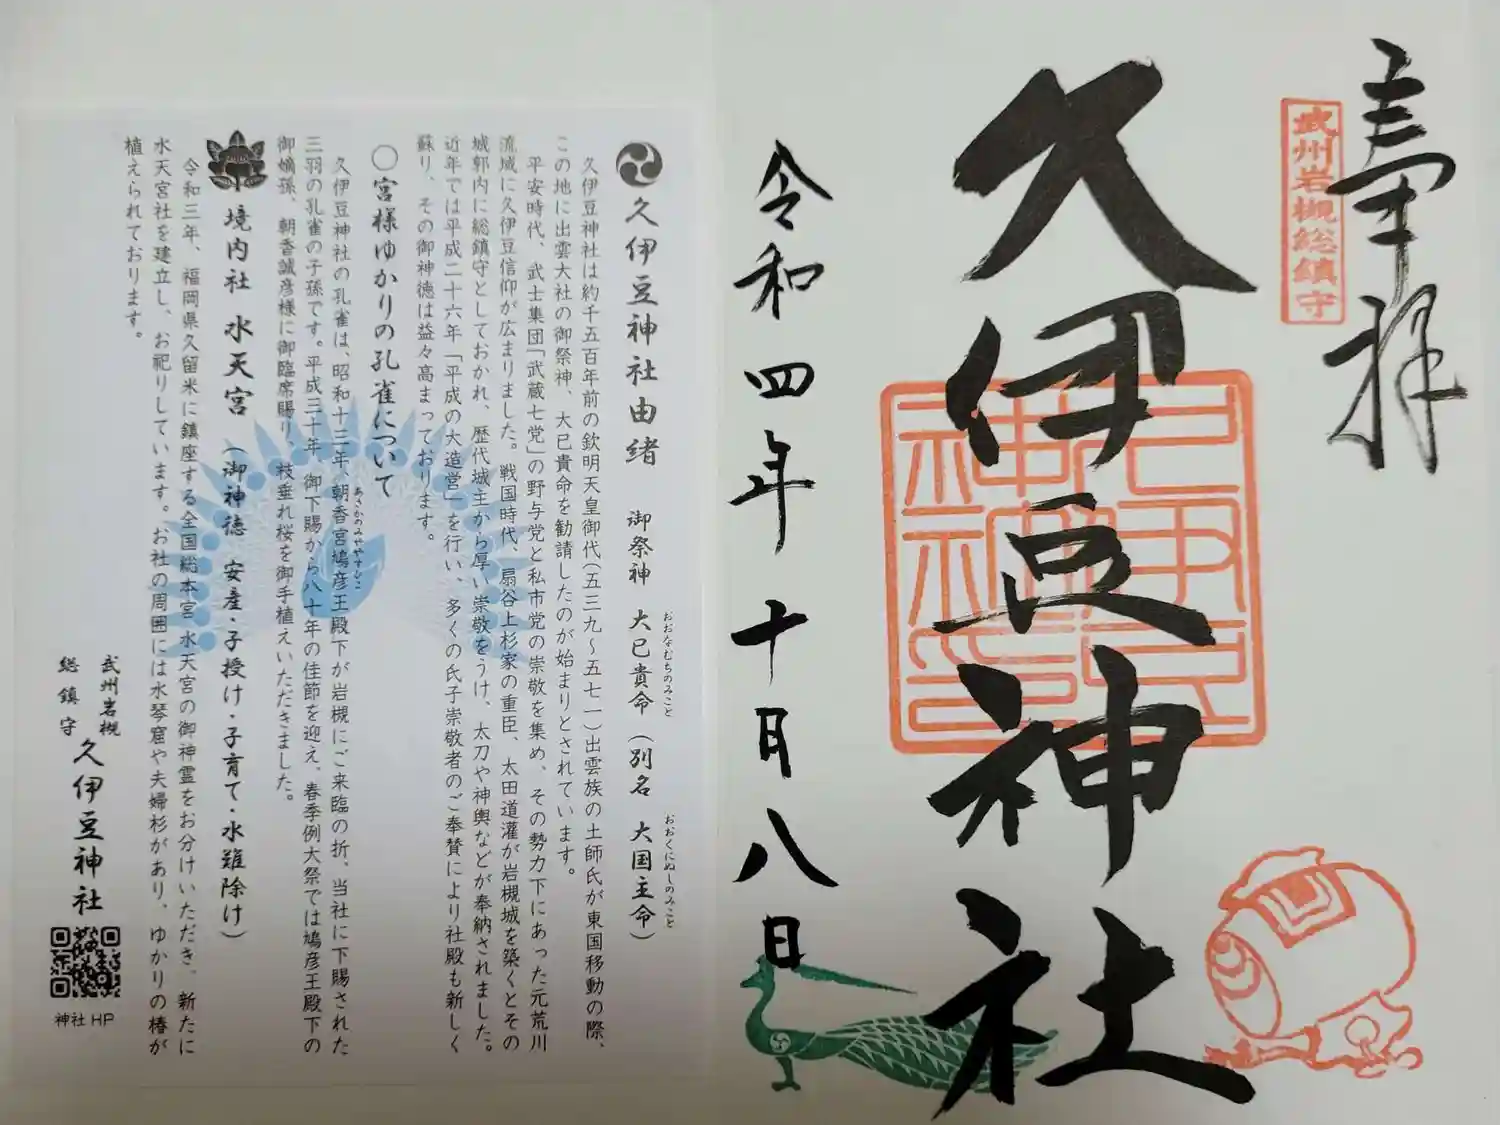 奉拝
武州岩槻総鎮守
久伊豆神社
令和四年十月八日
久伊豆神社由緒 御祭神 大已貴命(別名 大国主命)
おおなむちのみこと
おおくにぬしのみこと
久伊豆神社は約千五百年前の欽明天皇御代(五三九~五七一)出雲族の土師氏が東国移動の際、
この地に出雲大社の御祭神、大已貴命を勧請したのが始まりとされています。
平安時代、武士集団「武蔵七党」の野与党と私市党の崇敬を集め、その勢力下にあった元荒川
流域に久伊豆信仰が広まりました。戦国時代、扇谷上杉家の重臣、太田道灌が岩槻城を築くとその
城郭内に総鎮守としておかれ、歴代城主から厚い崇敬をうけ、太刀や神輿などが奉納されました。
近年では平成二十六年「平成の大造営」を行い、多くの氏子崇敬者のご奉賛により社殿も新しく
蘇り、その御神徳は益々高まっております。
〇宮様ゆかりの孔雀について
久伊豆神社の孔雀は、昭和十三年、朝香宮鳩彦王殿下が岩槻にご来臨の折、当社に下賜された
あさかのみややすひこ
三羽の孔雀の子孫です。平成三十年、御下賜から八十年の佳節を迎え、春季例大祭では鳩彦王殿下の
御嫡孫、朝香誠彦様に御臨席賜り、枝垂れ桜を御手植えいただきました。
境内社 水天宮 (御神徳 安産・子授け・子育て・水難除け)
令和三年、福岡県久留米に鎮座する全国総本宮 水天宮の御神霊をお分けいただき、新たに
水天宮社を建立し、お祀りしています。お社の周囲には水琴窟や夫婦杉があり、ゆかりの椿が
植えられております。
武州岩槻
総鎮守
久伊豆神社
神社HP